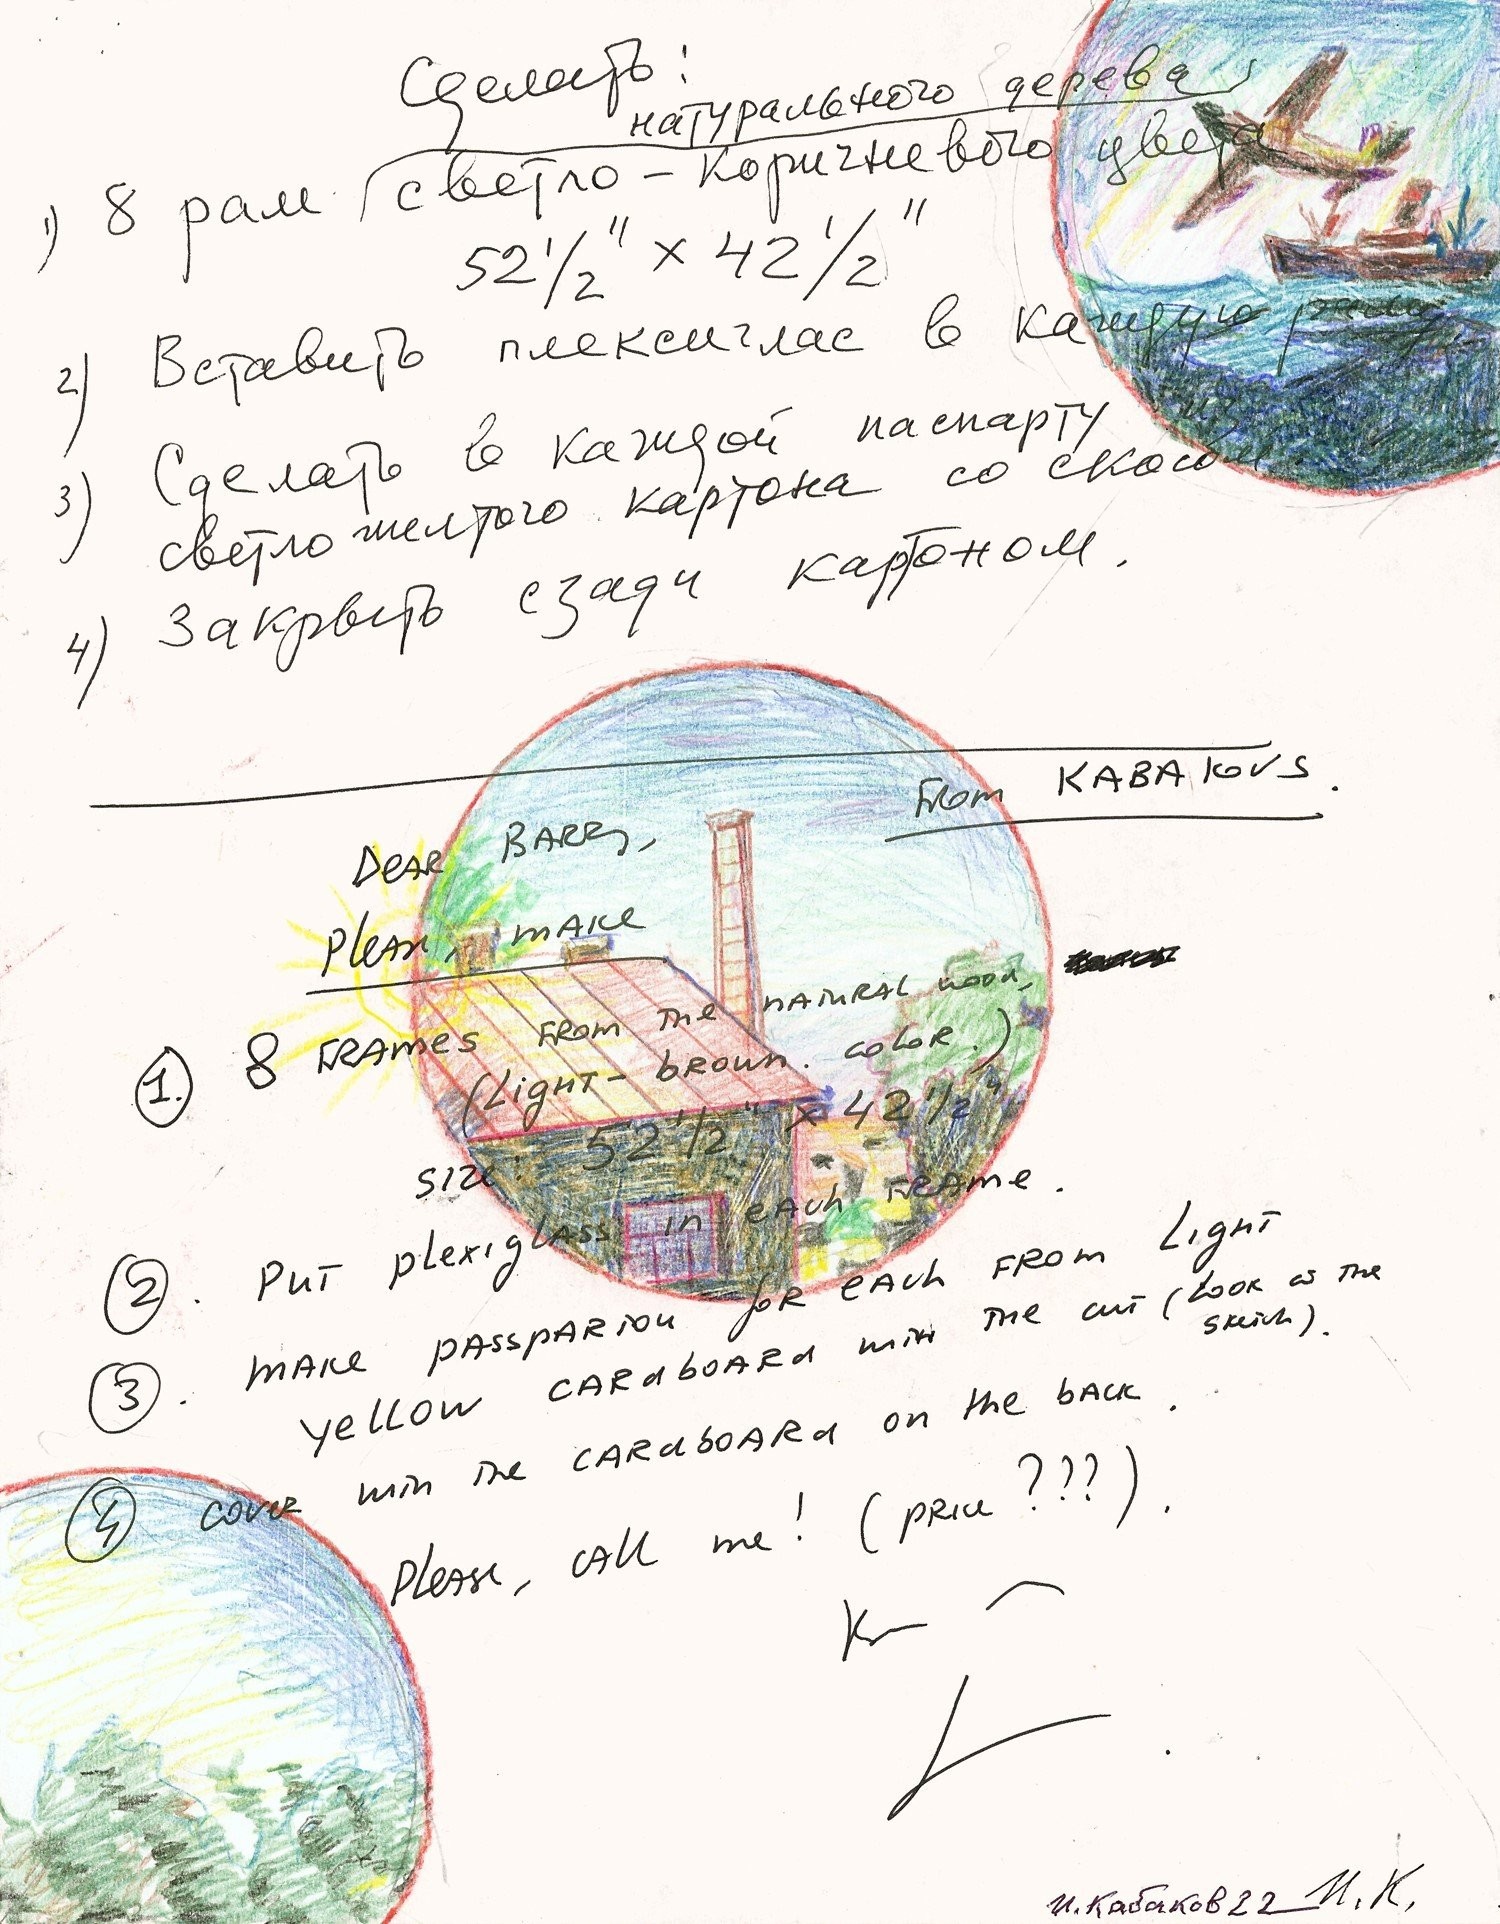 Сделать:
натурального дерева,
1) 8 рам светло-коричневого цвета
52 1/2" × 42 1/2"
2) Вставить плексиглас в каждую раму.
3) Сделать в каждой паспарту из
светло желтого картона со скосом.
4) Закрыть сзади картоном.
From KABAKOVS.
Dear BARRy,
Please, make
1. 8 FRAMES FROM the NATURAL wood,
(Light-brown. color.)
size: 52 1/2" × 42 1/2"
2. PUT plexiglass in each FRAME.
3. MAKE PASSPARTOU for each FROM Light
yellow CARdboARd with the cut (Look at the
sketch).
4 cover with the CARdboARd on the back.
Please, call me! (price ???).
И. Кабаков 22 И.К.